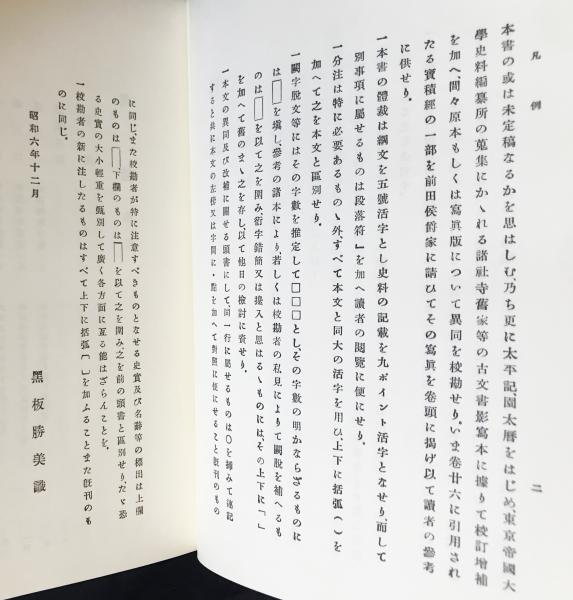 凡例
二
本書の或は未定稿なるかを思はしむ、乃ち更に太平記園太曆をはじめ、東京帝國大
學史料編纂所の蒐集にかゝれる諸社寺舊家等の古文書影寫本に據りて校訂增補
を加へ、間々原本もしくは寫眞版について異同を校勘せり。いま卷廿六に引用され
たる寶積經の一部を前田侯爵家に請ひてその寫眞を卷頭に揭げ以て讀者の參考
に供せり。
一本書の體裁は綱文を五號活字とし史料の記載を九ポイント活字となせり、而して
別事項に屬せるものは段落符』を加へ讀者の閱覽に便にせり。
一分注は特に必要あるものゝ外すべて本文と同大の活字を用ひ、上下に括弧()を
加へて之を本文と區別せり。
一闕字脫文等にはその字數を推定して□□□とし、その字數の明かならざるものに
は□を塡し、參考の諸本により、若しくは校勘者の私見によりて闕脫を補へるも
のは□を以て之を圍み、衍字錯簡又は攙入と思はるゝものには、その上下に「」
を加へて舊のまゝ之を存し、以て他日の檢討に資せり。
一本文の異同及び改補に關せる頭書にして、同一行に屬せるものは〇を揷みて連記
すると共に本文の左傍又は字間に・點を加へて對照に便にせること旣刊のもの
に同じ。また校勘者が特に注意すべきものとなせる史實及び名辭等の標出は上欄
のものは□下欄のものは□を以て之を圍み、之を前の頭書と區別せり、たゞ恐
る史實の大小輕重を甄別して廣く各方面に亙る能はざらんことを。
一校勘者の新に注したるものはすべて上下に括弧〔〕を加ふることまた旣刊のも
のに同じ。
昭和六年十二月
黑板勝美識